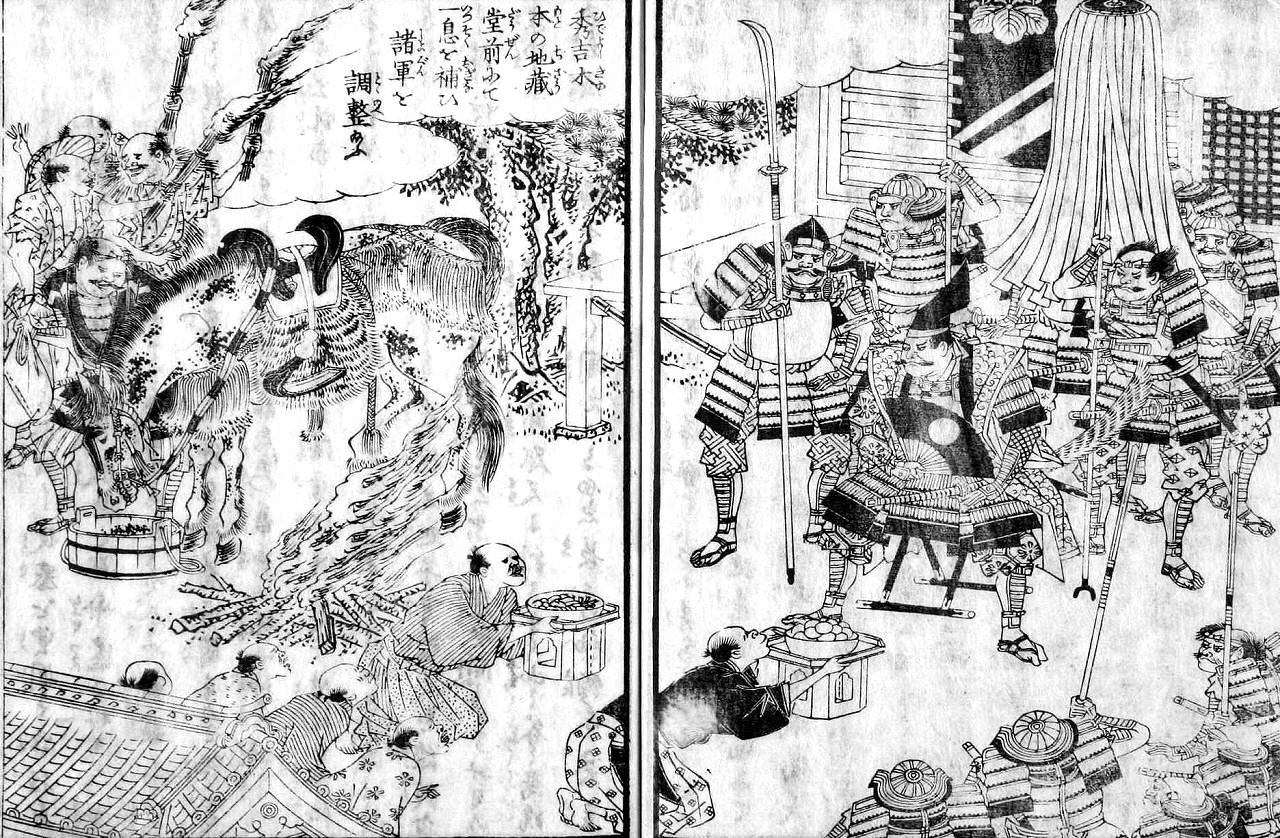 秀吉木
本の地蔵
堂前にて
一息を補ひ
諸軍を
調整ふ